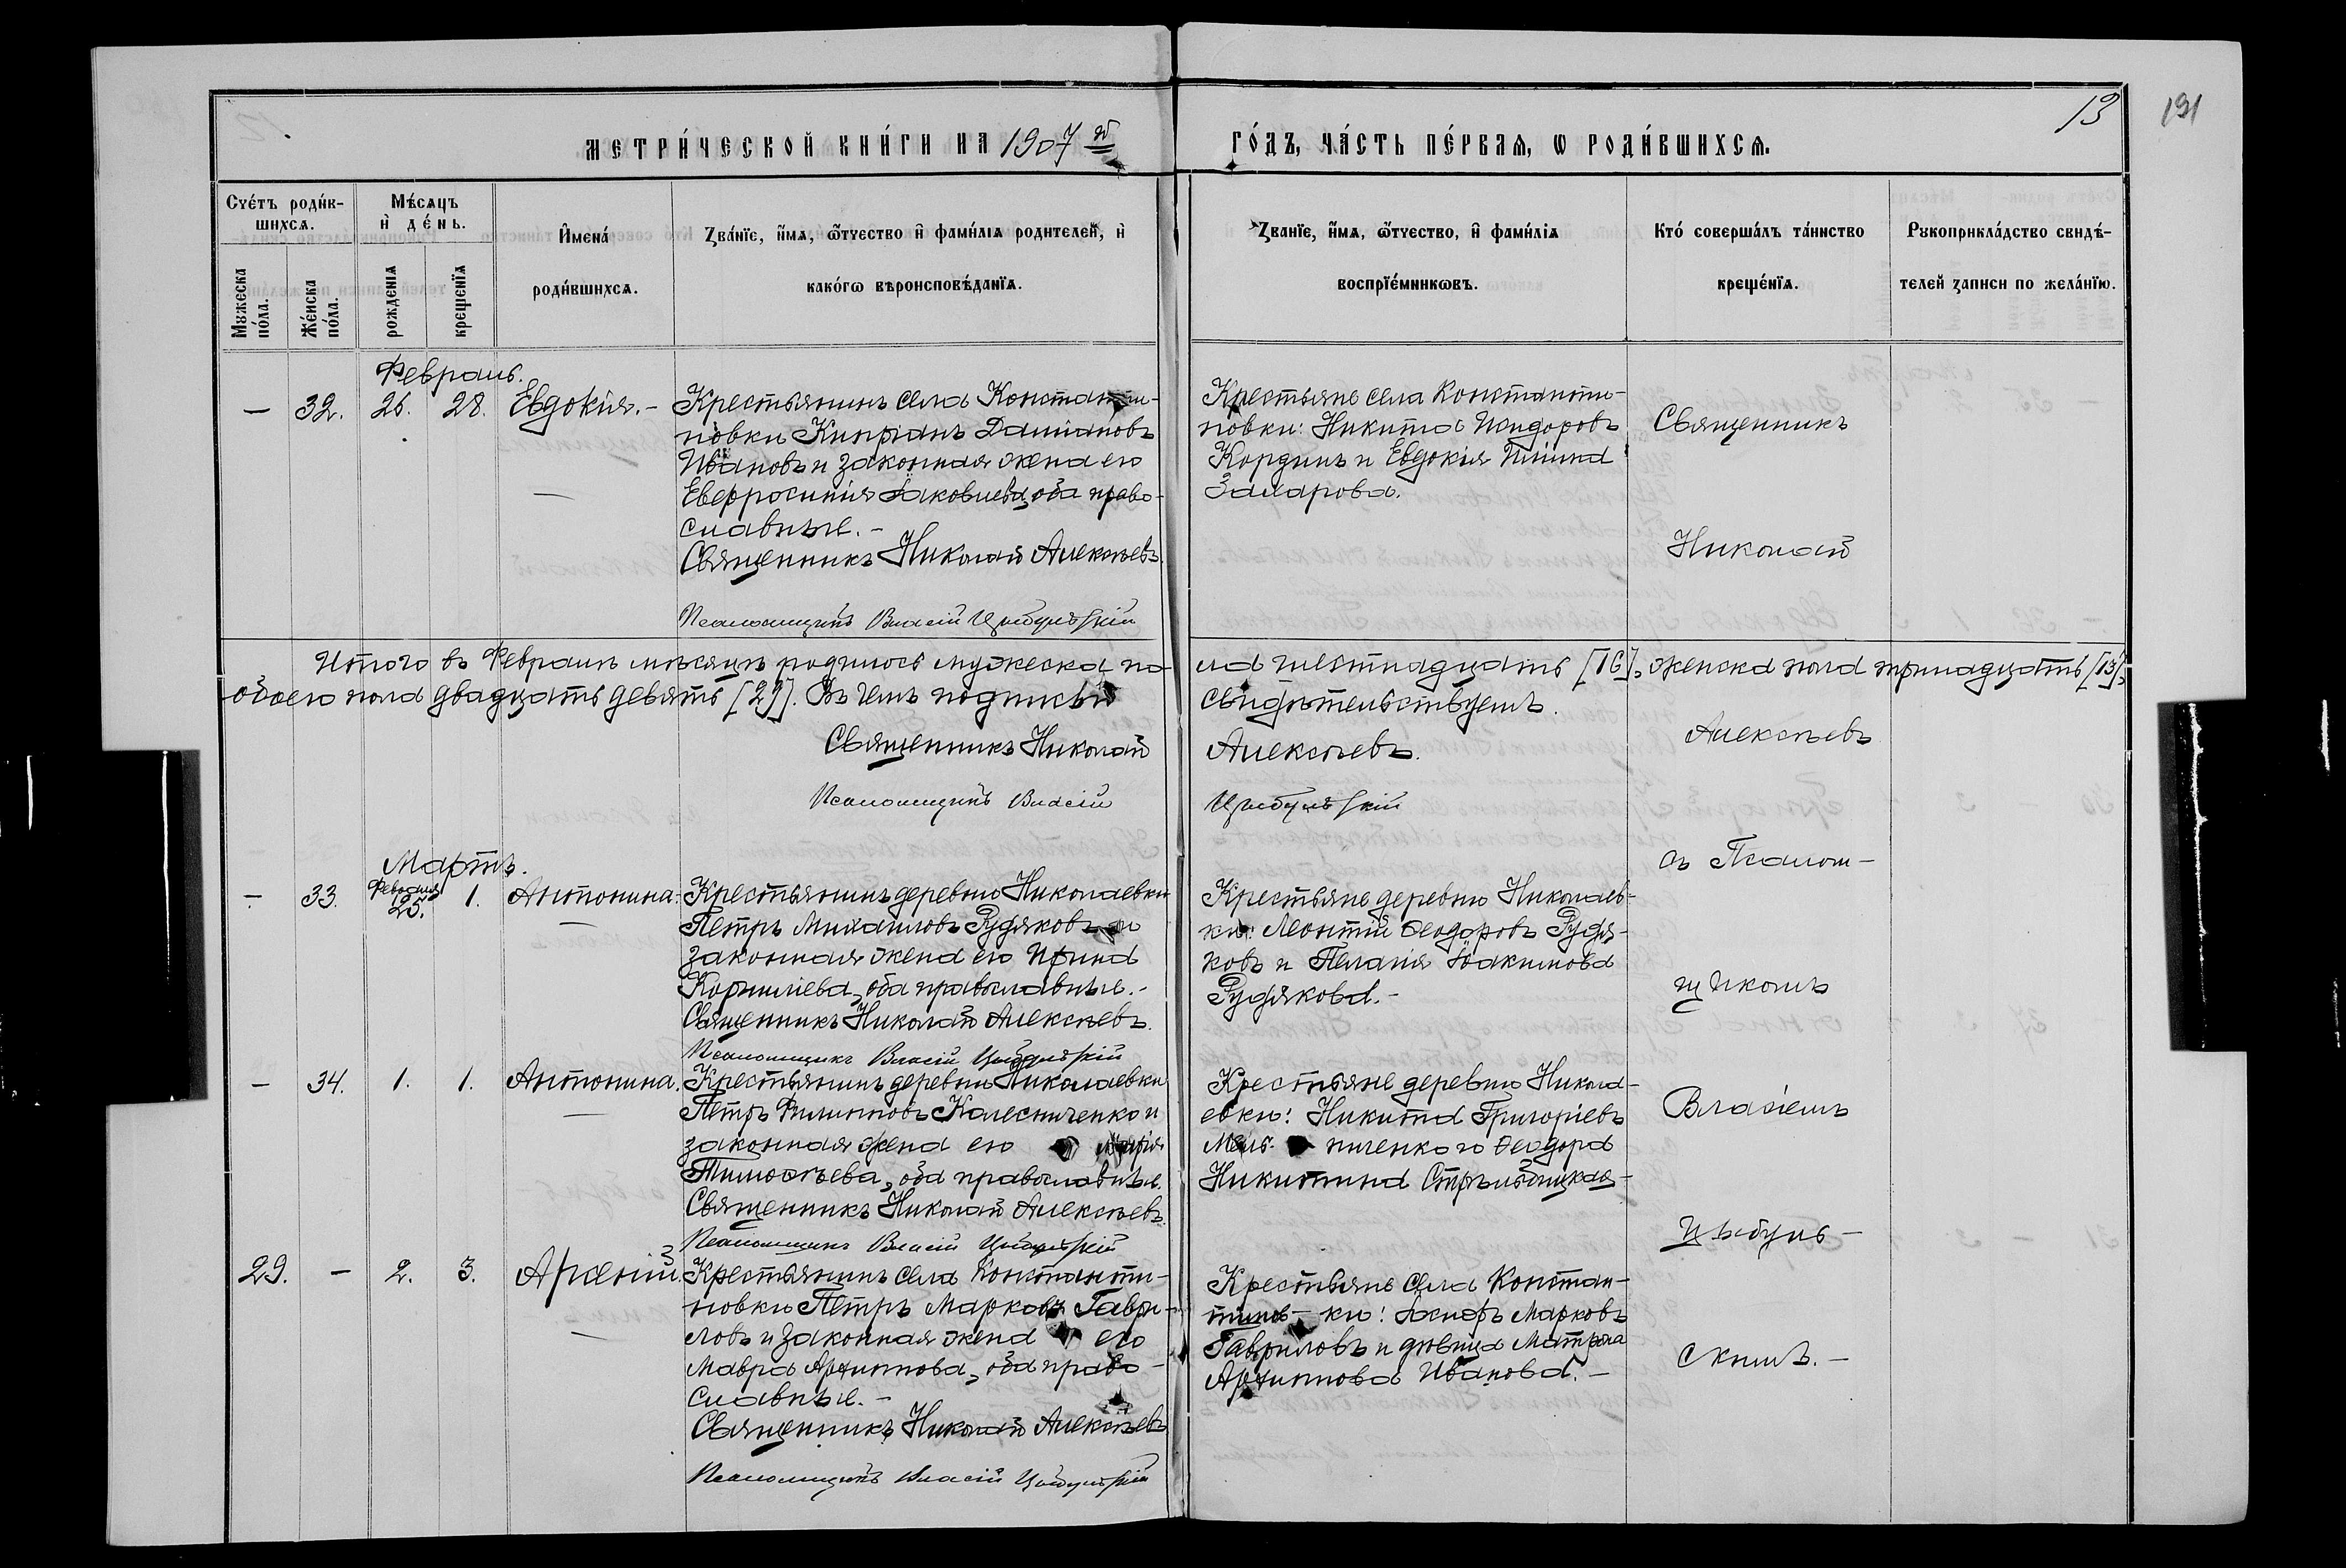 13
191
МЕТРИ́ЧЕСКОЙ КНИ́ГИ НА 1907 й
ГО́ДЪ, ЧА́СТЬ ПЕ́РВАѦ, Ѡ РОДИ́ВШИХСѦ.
Сче́тъ роди́в-
шихсѧ.
Мꙋжеска по́ла.
Же́нска по́ла.
Мѣ́сѧцъ
и҆ де́нь.
рожденіѧ
крещенїѧ
И҆мена́
роди́вшихсѧ.
Зва́нїе, и҆́мѧ, ѻ҆́тчество и҆ фами́лїѧ родителей, и҆
како́гѡ вѣроисповѣ́данїѧ.
Званїе, и҆́мѧ, ѻ҆́тчество, и҆ фами́лїѧ
воспрїе́мникѡвъ.
Кто́ соверша́лъ та́инство
креще́нїѧ.
Рꙋкоприкла́дство свидѣ́-
телей записи по жела́нїю.
Февраль.
— 32. 26. 28. Евдокія. –
Крестьянинъ села Константи-
новки Кипріанъ Даміановъ
Ивановъ и законная жена его
Евфросинія Іаковлева, оба право-
славные. –
Священникъ Николай Алексѣевъ.
Псаломщикъ Власій Цыбульскій
Крестьяне села Константи-
новки: Никита Исидоровъ
Кординъ и Евдокія
Захарова.
Священникъ
Николай
Итого въ Февралѣ мѣсяцѣ родилось мужеска по-
ла шестнадцать [16], женска пола тринадцать [13],
обоего пола двадцать девять [29]. Въ чемъ подписью
свидѣтельствуемъ.
Священникъ Николай
Алексѣевъ.
Псаломщикъ Власій
Цыбульскій
Алексѣевъ
Мартъ.
— 33. Февраля 25. 1. Антонина.
Крестьянинъ деревни Николаевки
Петръ Михаиловъ Рудяковъ и
законная жена его Ирина
Корниліева, оба православные. –
Священникъ Николай Алексѣевъ.
Псаломщикъ Власій Цыбульскій
Крестьяне деревни Николаев-
ки: Леонтій Ѳеодоровъ Рудя-
ковъ и Пелагія Іоакимова
Рудякова. –
съ Псалом-
щикомъ
— 34. 1. 1. Антонина.
Крестьянинъ деревни Николаевки
Петръ Филипповъ Колесниченко и
законная жена его Марія
Тимоѳеева, оба православные.
Священникъ Николай Алексѣевъ.
Псаломщикъ Власій Цыбульскій
Крестьяне деревни Никола-
евки: Никита Григоріевъ
Мель- ниченко и Ѳеодора
Никитина Стрѣлбицкая –
Власіемъ
Цыбуль-
29. — 2. 3. Арсеній.
Крестьянинъ села Константи-
новки Петръ Марковъ Гаври-
ловъ и законная жена его
Мавра Архипова, оба право-
славные. –
Священникъ Николай Алексѣевъ
Псаломщикъ Власій Цыбульскій
Крестьяне села Констан-
тинов- ки: Іосифъ Марковъ
Гавриловъ и дѣвица Матрона
Архипова Иванова. –
скимъ. –